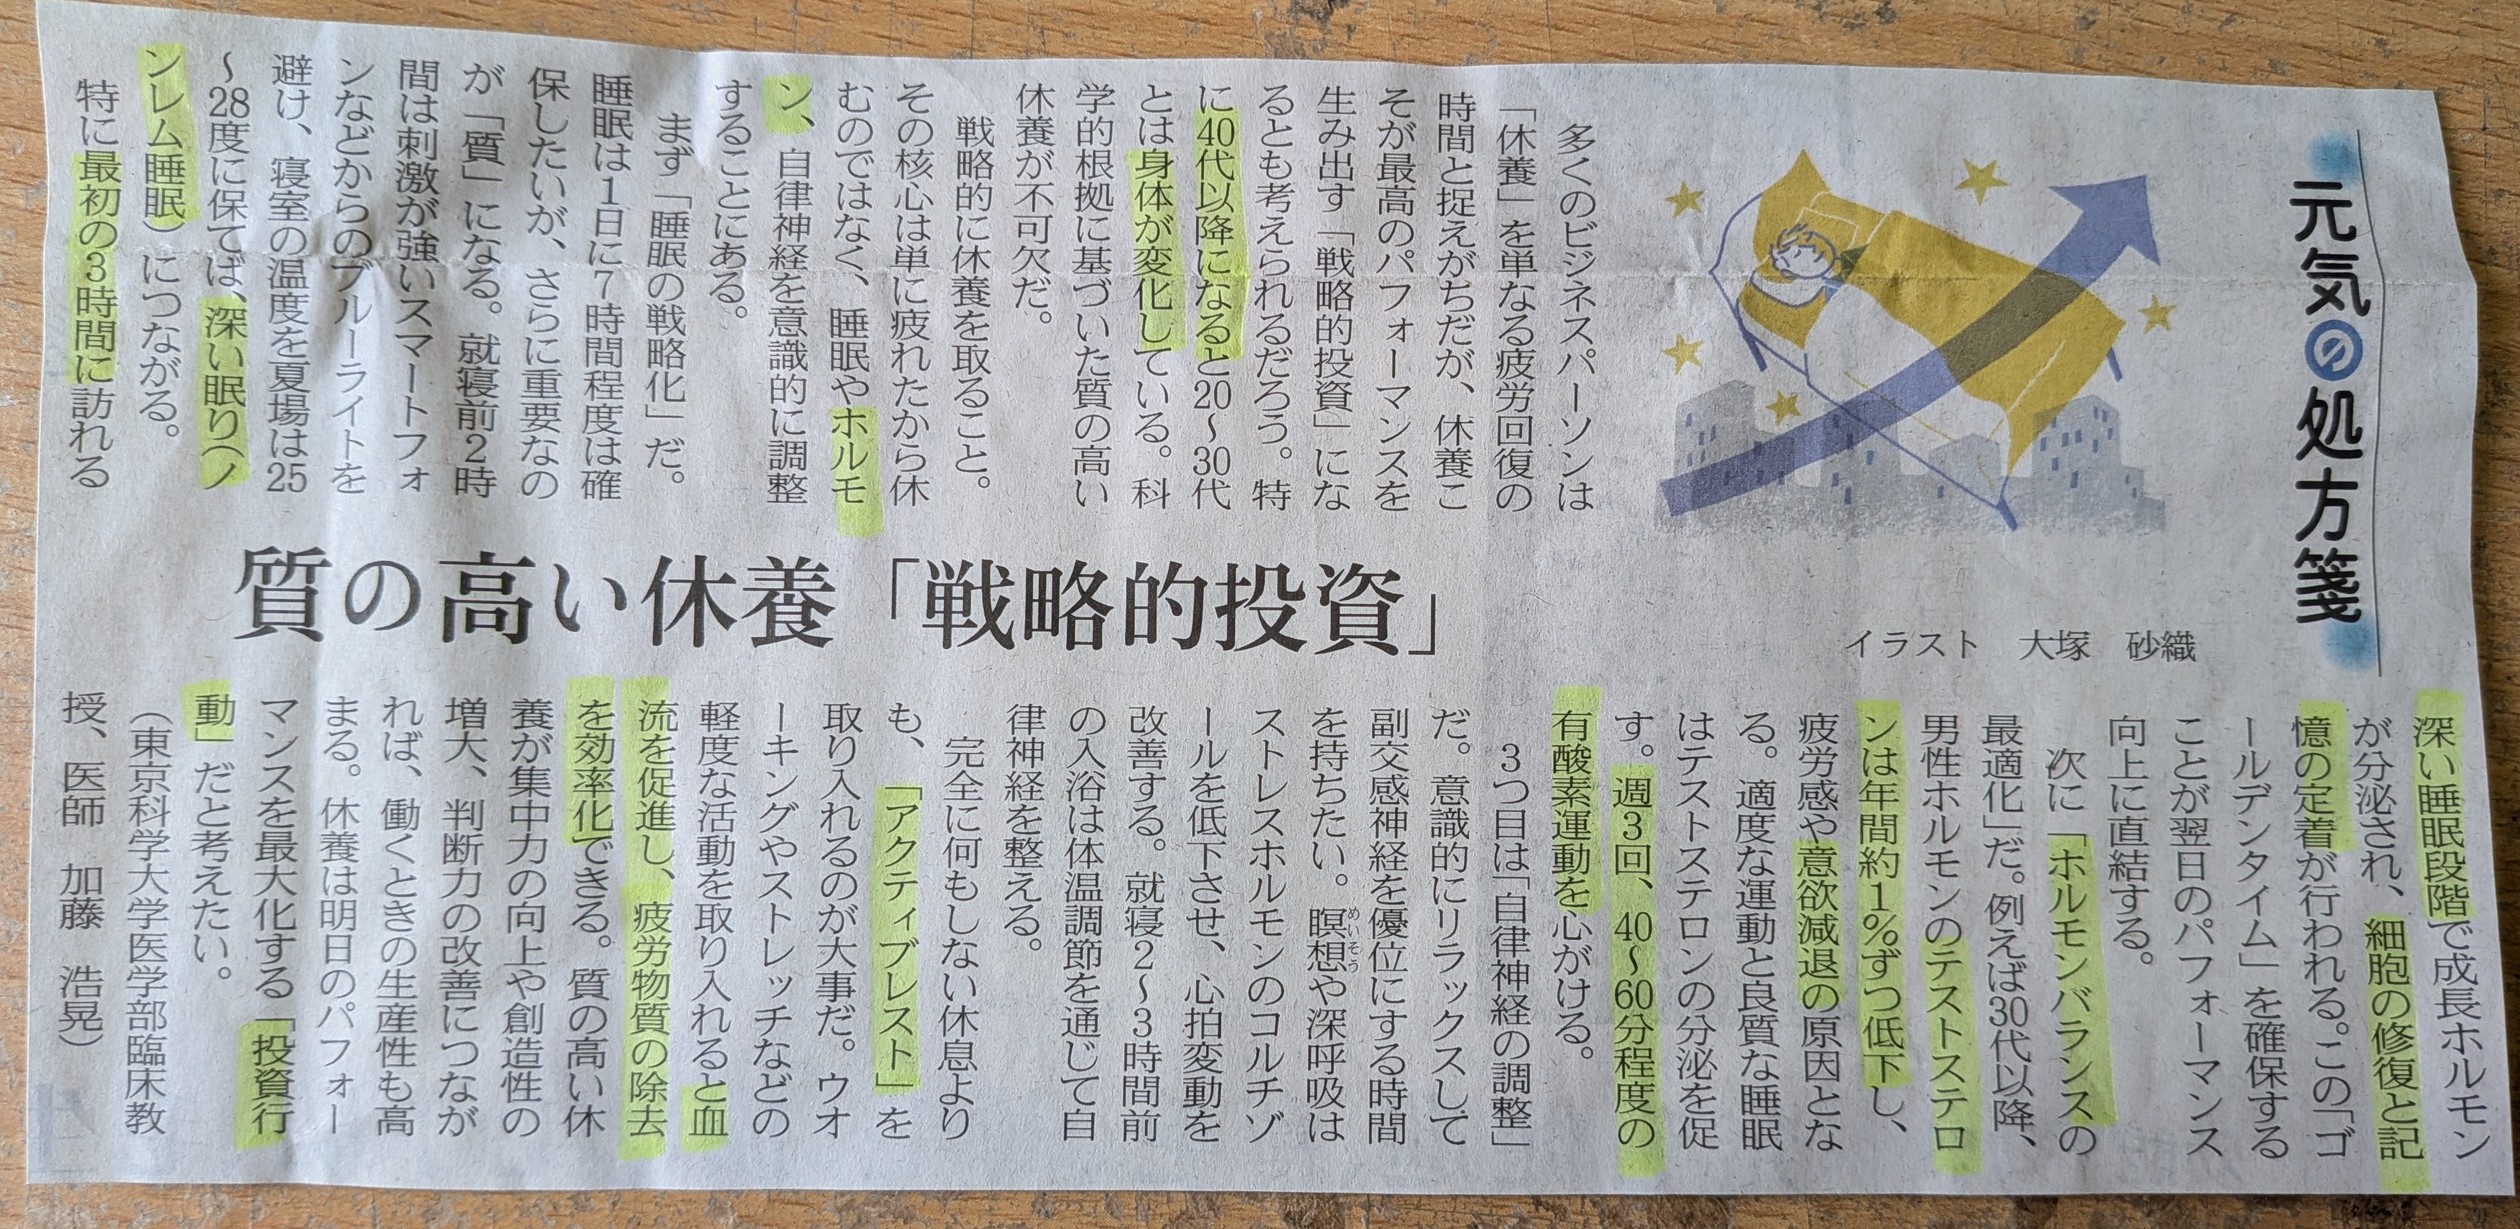 元気の処方箋
イラスト　大塚　砂織
質の高い休養「戦略的投資」
多くのビジネスパーソンは
「休養」を単なる疲労回復の
時間と捉えがちだが、休養こ
そが最高のパフォーマンスを
生み出す「戦略的投資」にな
るとも考えられるだろう。特
に40代以降になると20〜30代
とは身体が変化している。科
学的根拠に基づいた質の高い
休養が不可欠だ。
戦略的に休養を取ること。
その核心は単に疲れたから休
むのではなく、睡眠やホルモ
ン、自律神経を意識的に調整
することにある。
まず「睡眠の戦略化」だ。
睡眠は1日に7時間程度は確
保したいが、さらに重要なの
が「質」になる。就寝前2時
間は刺激が強いスマートフォ
ンなどからのブルーライトを
避け、寝室の温度を夏場は25
〜28度に保てば、深い眠り（ノ
ンレム睡眠）につながる。
特に最初の3時間に訪れる
深い睡眠段階で成長ホルモン
が分泌され、細胞の修復と記
憶の定着が行われる。この「ゴ
ールデンタイム」を確保する
ことが翌日のパフォーマンス
向上に直結する。
次に「ホルモンバランスの
最適化」だ。例えば30代以降、
男性ホルモンのテストステロ
ンは年間約1％ずつ低下し、
疲労感や意欲減退の原因とな
る。適度な運動と良質な睡眠
はテストステロンの分泌を促
す。週3回、40〜60分程度の
有酸素運動を心がける。
3つ目は「自律神経の調整」
だ。意識的にリラックスして
副交感神経を優位にする時間
を持ちたい。瞑想（めいそう）や深呼吸は
ストレスホルモンのコルチゾ
ールを低下させ、心拍変動を
改善する。就寝2〜3時間前
の入浴は体温調節を通じて自
律神経を整える。
完全に何もしない休息より
も、「アクティブレスト」を
取り入れるのが大事だ。ウオ
ーキングやストレッチなどの
軽度な活動を取り入れると血
流を促進し、疲労物質の除去
を効率化できる。質の高い休
養が集中力の向上や創造性の
増大、判断力の改善につなが
れば、働くときの生産性も高
まる。休養は明日のパフォー
マンスを最大化する「投資行
動」だと考えたい。
（東京科学大学医学部臨床教
授、医師　加藤　浩晃）